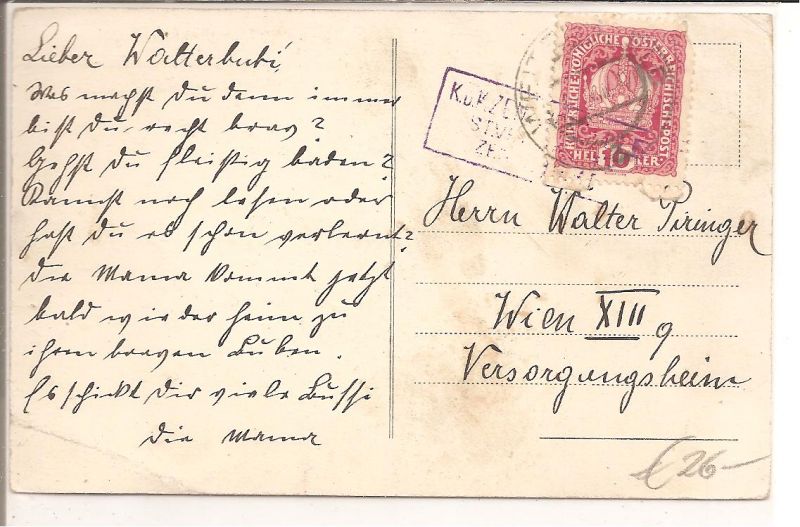 Lieber Walterbubi,
Was machst du denn immer
bist du recht brav?
Gehst du fleißig baden?
Kannst noch lesen oder
hast du es schon verlernt?
die Mama kommt jetzt
bald wieder heim zu
ihrem braven Buben.
Es schickt dir viele Bussi
die Mama
K.u.K. ZE
KAISERLICHE KÖNIGLICHE ÖSTERREICHISCHE POST
HELLER
10
Herrn Walter Piringer
Wien XIII 9
Versorgungsheim
26-